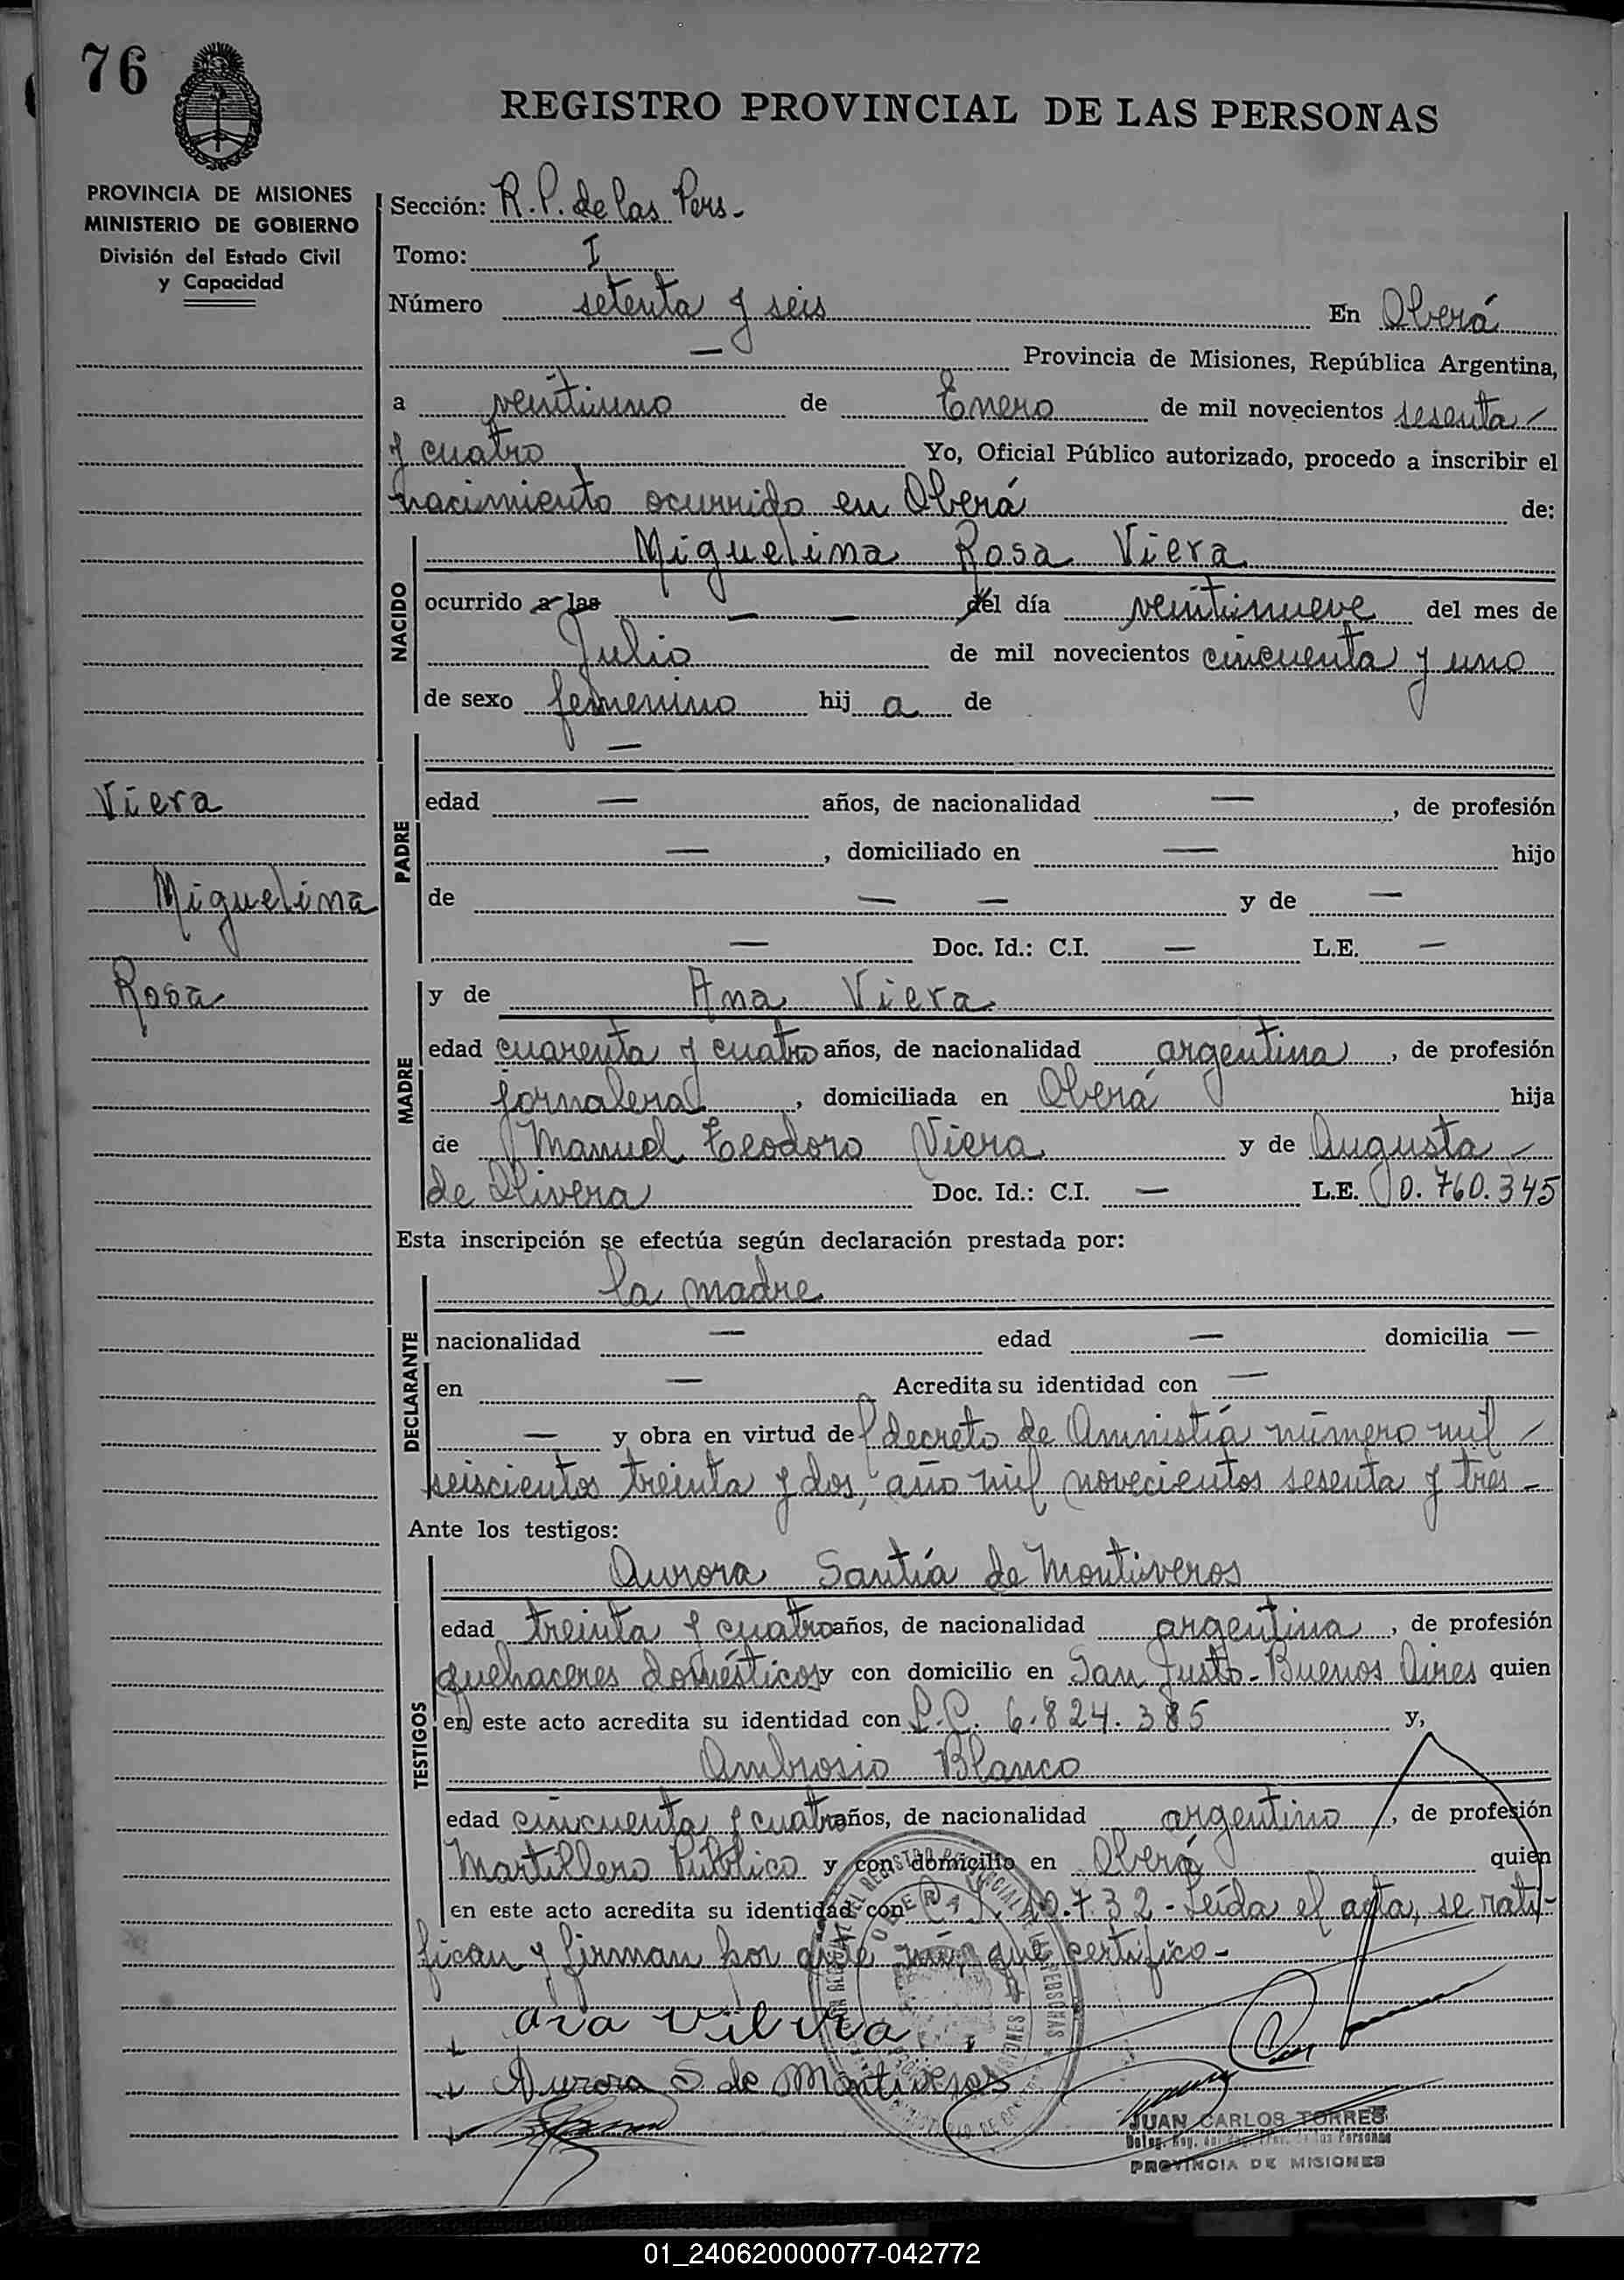 76
REGISTRO PROVINCIAL DE LAS PERSONAS
PROVINCIA DE MISIONES
MINISTERIO DE GOBIERNO
División del Estado Civil
y Capacidad
Sección: R.P. de las Pers-
Tomo: I
Número setenta y seis En Oberá
— Provincia de Misiones, República Argentina,
a veintiuno de Enero de mil novecientos sesenta
y cuatro Yo, Oficial Público autorizado, procedo a inscribir el
nacimiento ocurrido en Oberá de:
NACIDO
Miguelina Rosa Viera
ocurrido a las — — del día veintinueve del mes de
Julio de mil novecientos cincuenta y uno
de sexo femenino hij a de
Viera
Miguelina
Rosa
PADRE
—
edad — años, de nacionalidad —, de profesión
—, domiciliado en — hijo
de — — y de —
— Doc. Id.: C.I. — L.E. —
MADRE
y de Ana Viera
edad cuarenta y cuatro años, de nacionalidad argentina, de profesión
jornalera, domiciliada en Oberá hija
de Manuel Teodoro Viera y de Augusta
de Olivera Doc. Id.: C.I. — L.E. 0.760.345
Esta inscripción se efectúa según declaración prestada por:
DECLARANTE
la madre
nacionalidad — edad — domicilia —
en — Acredita su identidad con —
— y obra en virtud del decreto de Amnistía número mil
seiscientos treinta y dos, año mil novecientos sesenta y tres -
Ante los testigos:
TESTIGOS
Aurora Santía de Montiveros
edad treinta y cuatro años, de nacionalidad argentina, de profesión
quehaceres domésticos y con domicilio en San Justo - Buenos Aires quien
en este acto acredita su identidad con L.C. 6.824.385 y,
Ambrosio Blanco
edad cincuenta y cuatro años, de nacionalidad argentino, de profesión
Martillero Público y con domicilio en Oberá quien
en este acto acredita su identidad con 10.732 - Leída el acta, se rati-
fican y firman por ante mí, que certifico -
Aurora S de Montiveros
JUAN CARLOS TORRES
PROVINCIA DE MISIONES
01_240620000077-042772